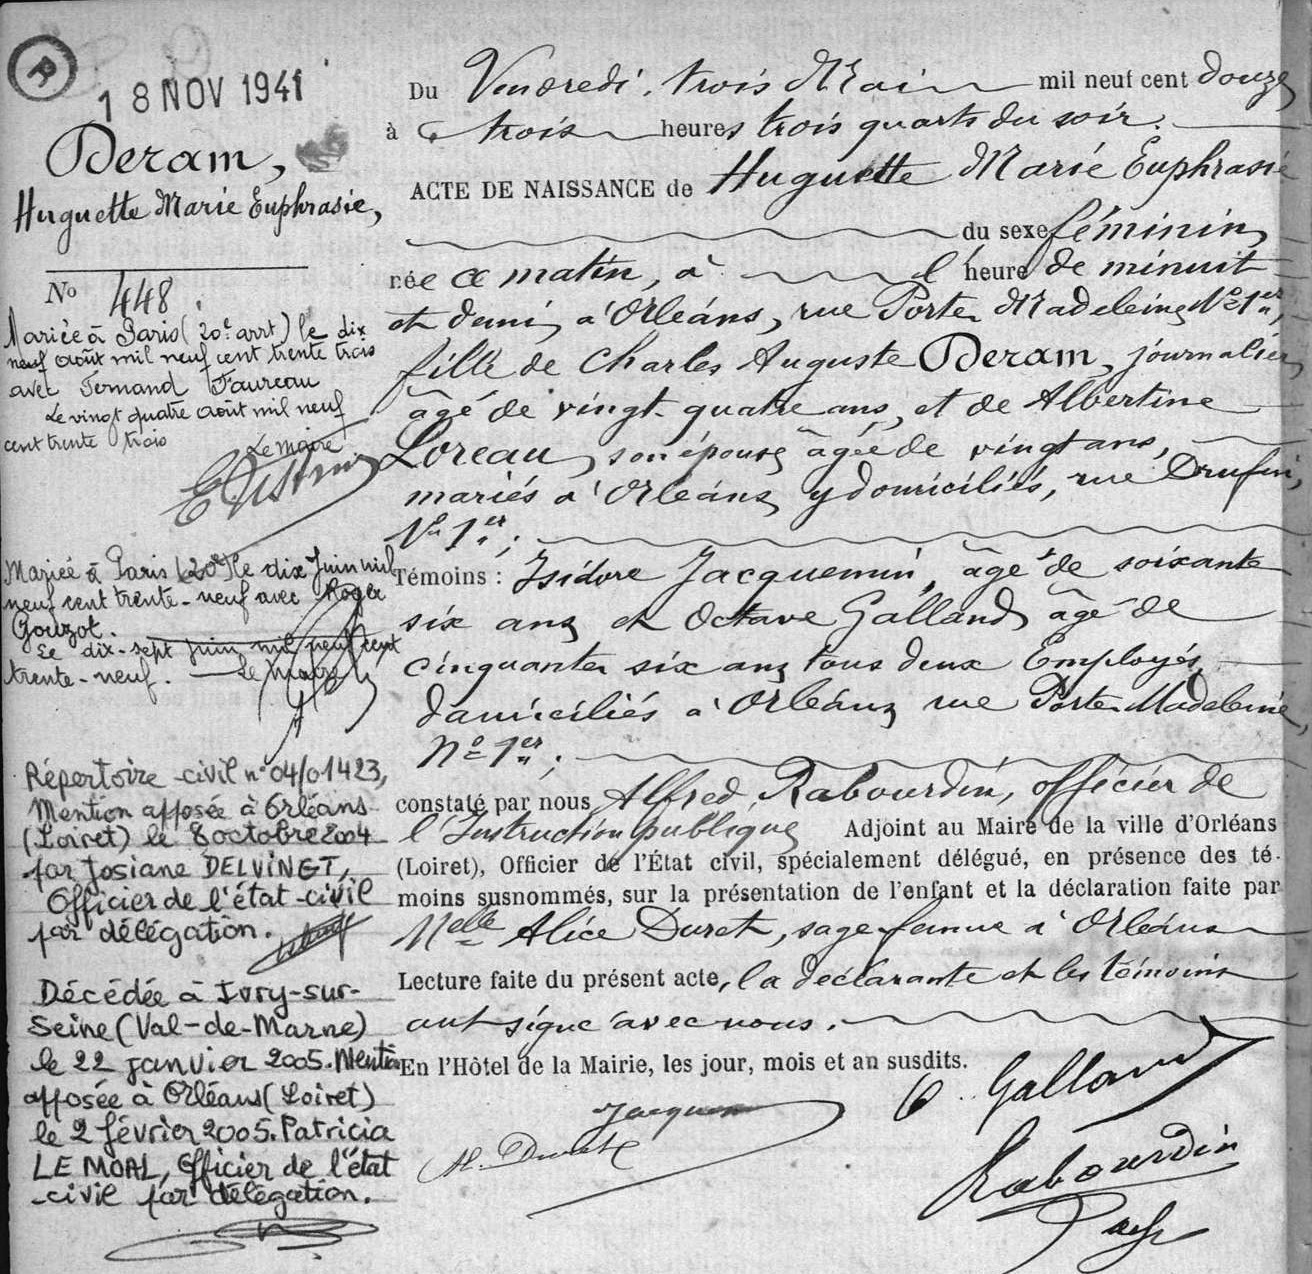 R
18 NOV 1941
Deram,
Huguette Marie Euphrasie,
No 448.
Mariée à Paris (20e arrt) le dix
neuf août mil neuf cent trente trois
avec Fernand Faureau
Le vingt quatre août mil neuf
cent trente trois
Le Maire
Mariée à Paris (20e) le dix Juin mil
neuf cent trente-neuf avec Roger
Gouzot.
Le dix-sept juin mil neuf cent
trente-neuf. Le Maire
Répertoire civil n° 04/01423,
Mention apposée à Orléans
(Loiret) le 8 octobre 2004
par Josiane DELVINGT,
Officier de l'état-civil
par délégation.
Décédée à Ivry-sur-
Seine (Val-de-Marne)
le 22 janvier 2005. Mention
apposée à Orléans (Loiret)
le 2 février 2005. Patricia
LE MOAL, Officier de l'état
-civil par délégation.
Du Vendredi, trois Mai mil neuf cent douze
à trois heures trois quarts du soir.
ACTE DE NAISSANCE de Huguette Marie Euphrasie
du sexe féminin,
née ce matin, à l'heure de minuit
et demi, à Orléans, rue Porte Madeleine No 1er,
fille de Charles Auguste Deram, journalier,
âgé de vingt-quatre ans, et de Albertine
Loreau, son épouse, âgée de vingt ans,
mariés à Orléans, y domiciliés, rue Drufin,
No 1er;
Témoins : Isidore Jacquemin, âgé de soixante
six ans et Octave Galland, âgé de
cinquante six ans, tous deux Employés,
domiciliés à Orléans, rue Porte Madeleine,
No 1er;
constaté par nous, Alfred Rabourdin, officier de
l'Instruction publique, Adjoint au Maire de la ville d'Orléans
(Loiret), Officier de l'État civil, spécialement délégué, en présence des té-
moins susnommés, sur la présentation de l'enfant et la déclaration faite par
Melle Alice Duret, sage femme à Orléans
Lecture faite du présent acte, la déclarante et les témoins
ont signé avec nous.
En l'Hôtel de la Mairie, les jour, mois et an susdits.
O. Galland
Jacquemin
A. Duret
Rabourdin